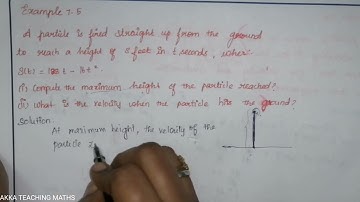 Example 7.5
A particle is fired straight up from the ground
to reach a height of s feet in t seconds, where
s(t) = 128 t - 16t².
(i) compute the maximum height of the particle reached?
(ii) what is the velocity when the particle hits the ground?
Solution:
At maximum height, the velocity of the
particle
AKKA TEACHING MATHS